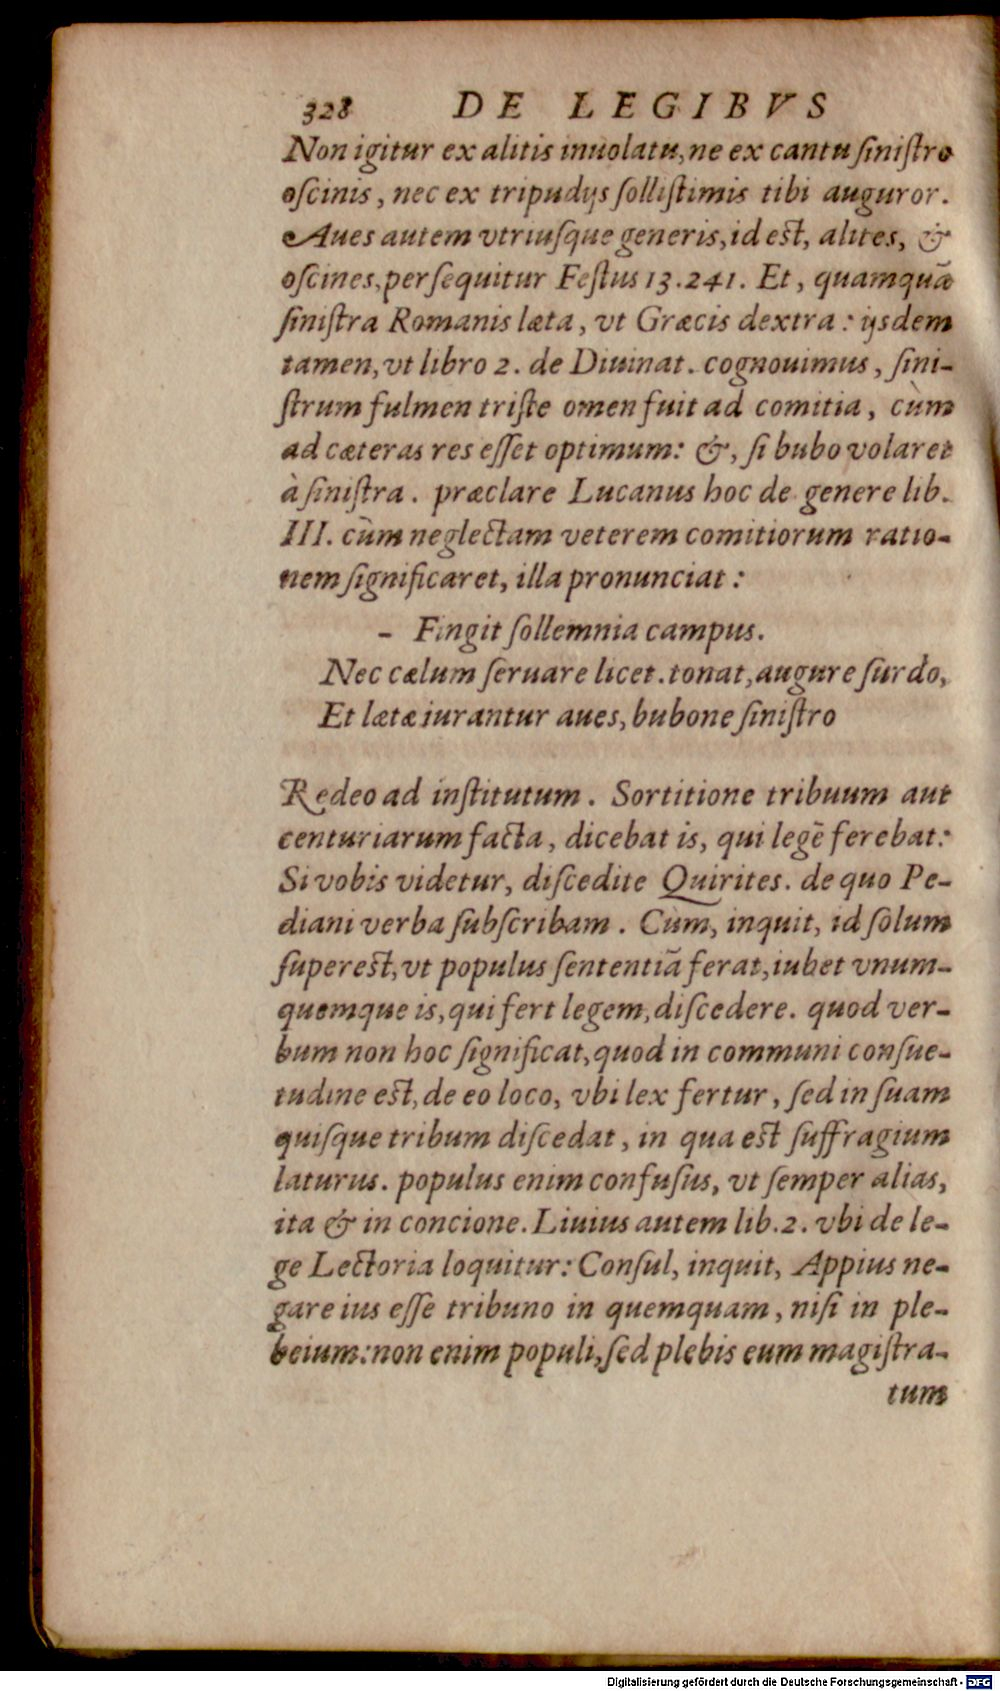 328 DE LEGIBVS
Non igitur ex alitis inuolatu, ne ex cantu siniſtro
oſcinis, nec ex tripudijs ſolliſtimis tibi auguror.
Aues autem vtriuſque generis, id est, alites, &
oſcines, perſequitur Feſtus 13.241. Et, quamquã
ſiniſtra Romanis læta, vt Græcis dextra: ijsdem
tamen, vt libro 2. de Diuinat. cognouimus, ſini-
ſtrum fulmen triſte omen fuit ad comitia, cùm
ad cæteras res eſſet optimum: &, ſi bubo volaret
à ſiniſtra. præclare Lucanus hoc de genere lib.
III. cùm neglectam veterem comitiorum ratio-
nem ſignificaret, illa pronunciat:
- Fingit ſollemnia campus.
Nec cælum ſeruare licet. tonat, augure ſurdo,
Et lætæ iurantur aues, bubone ſiniſtro
Redeo ad inſtitutum. Sortitione tribuum aut
centuriarum facta, dicebat is, qui legẽ ferebat:
Si vobis videtur, diſcedite Quirites. de quo Pe-
diani verba ſubſcribam. Cùm, inquit, id ſolum
ſupereſt, vt populus ſententiã ferat, iubet vnum-
quemque is, qui fert legem, diſcedere. quod ver-
bum non hoc ſignificat, quod in communi conſue-
tudine est, de eo loco, vbi lex fertur, ſed in ſuam
quiſque tribum diſcedat, in qua est ſuffragium
laturus. populus enim confuſus, vt ſemper alias,
ita & in concione. Liuius autem lib.2. vbi de le-
ge Lectoria loquitur: Conſul, inquit, Appius ne-
gare ius eſſe tribuno in quemquam, niſi in ple-
beium: non enim populi, ſed plebis eum magiſtra-
tum
Digitalisierung gefördert durch die Deutsche Forschungsgemeinschaft - DFG